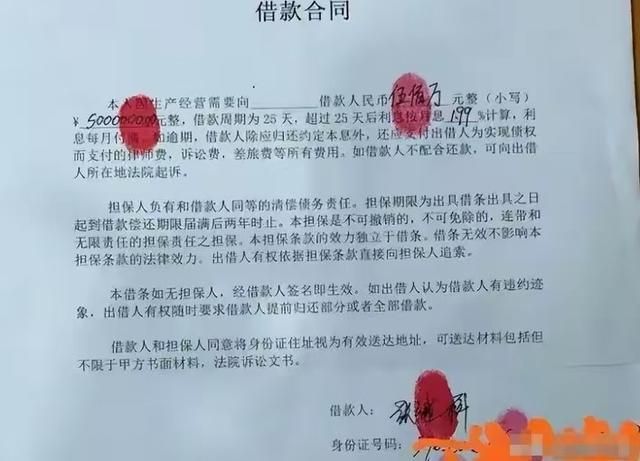 借款合同
本人因生产经营需要向 借款人民币伍佰万元整（小写）
￥5000000.00元整，借款周期为25天，超过25天后利息按月息1.99%计算，利
息每月付清。如逾期，借款人除应归还约定本息外，还应支付出借人为实现债权
而支付的律师费，诉讼费，差旅费等所有费用。如借款人不配合还款，可向出借
人所在地法院起诉。
担保人负有和借款人同等的清偿债务责任。担保期限为出具借条出具之日
起到借款偿还期限届满后两年时止。本担保是不可撤销的，不可免除的，连带和
无限责任的担保责任之担保。本担保条款的效力独立于借条。借条无效不影响本
担保条款的法律效力。出借人有权依据担保条款直接向担保人追索。
本借条如无担保人，经借款人签名即生效。如出借人认为借款人有违约迹
象，出借人有权随时要求借款人提前归还部分或者全部借款。
借款人和担保人同意将身份证住址视为有效送达地址，可送达材料包括但
不限于甲方书面材料，法院诉讼文书。
借款人：张继科
身份证号码：